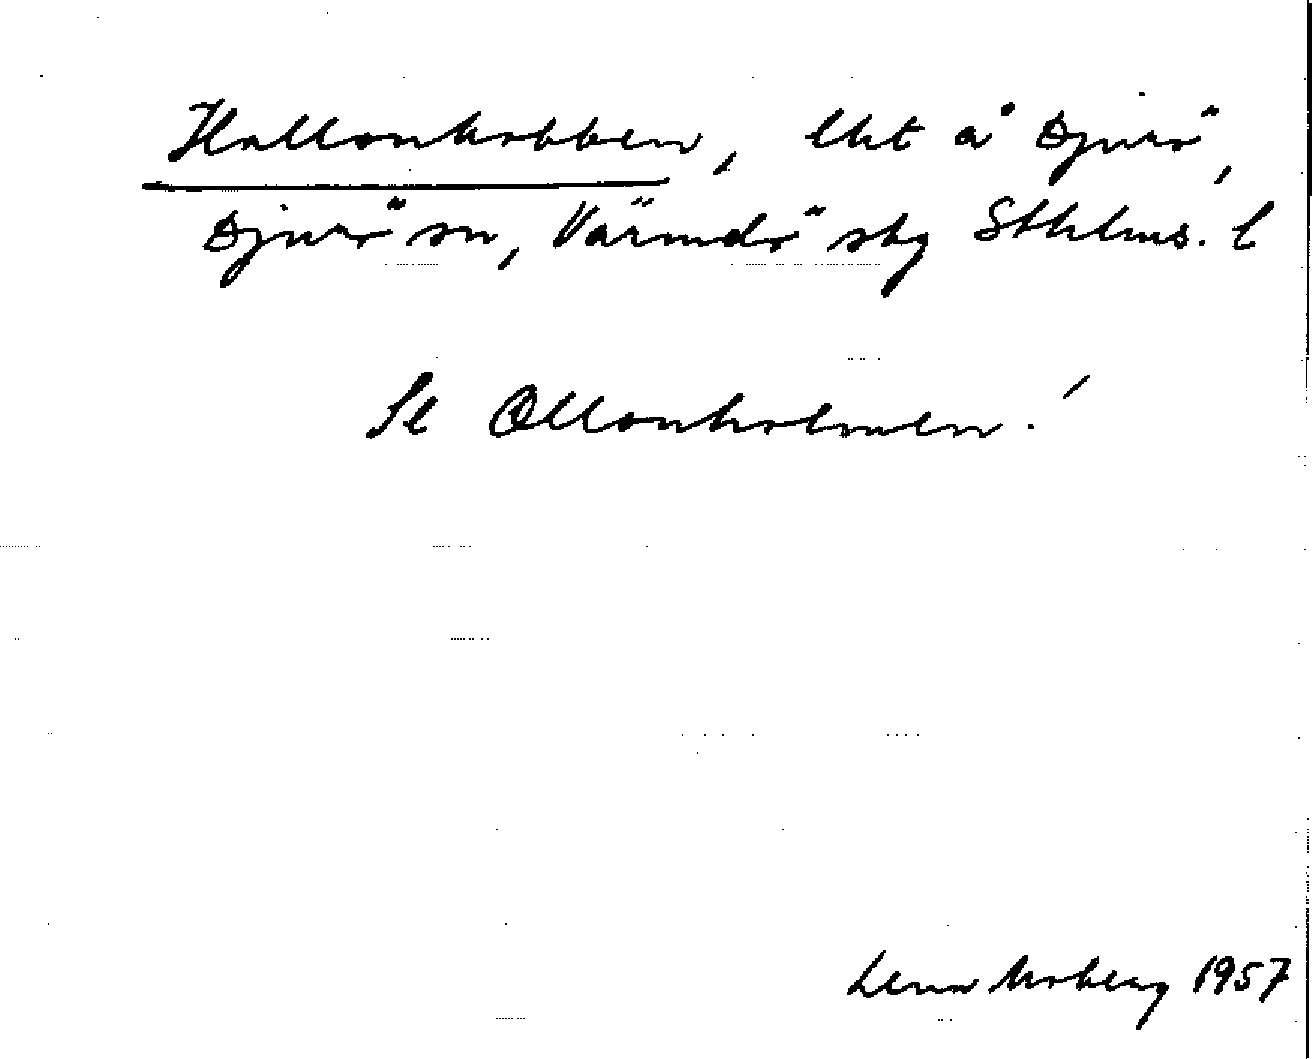 Hallonkobben, lht å Djurö,
Djurö sn, Värmdö skg Sthlms. l
Se Ollonholmen!
Lena Moberg 1957